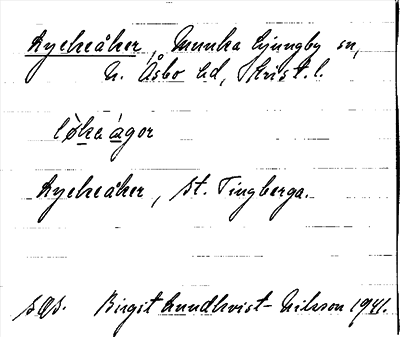 Lyckeåker, Munka Ljungby sn,
N. Åsbo hd, Krist. l.
løkeágor
Lyckeåker, st. Tingberga.
sgs. Birgit Lundkvist-Nilsson 1941.